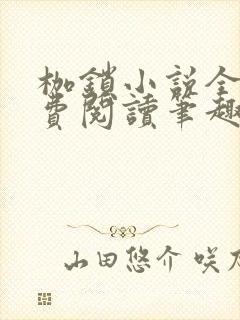 枷鎖小説全
費閱讀筆趣
山田悠介 咲